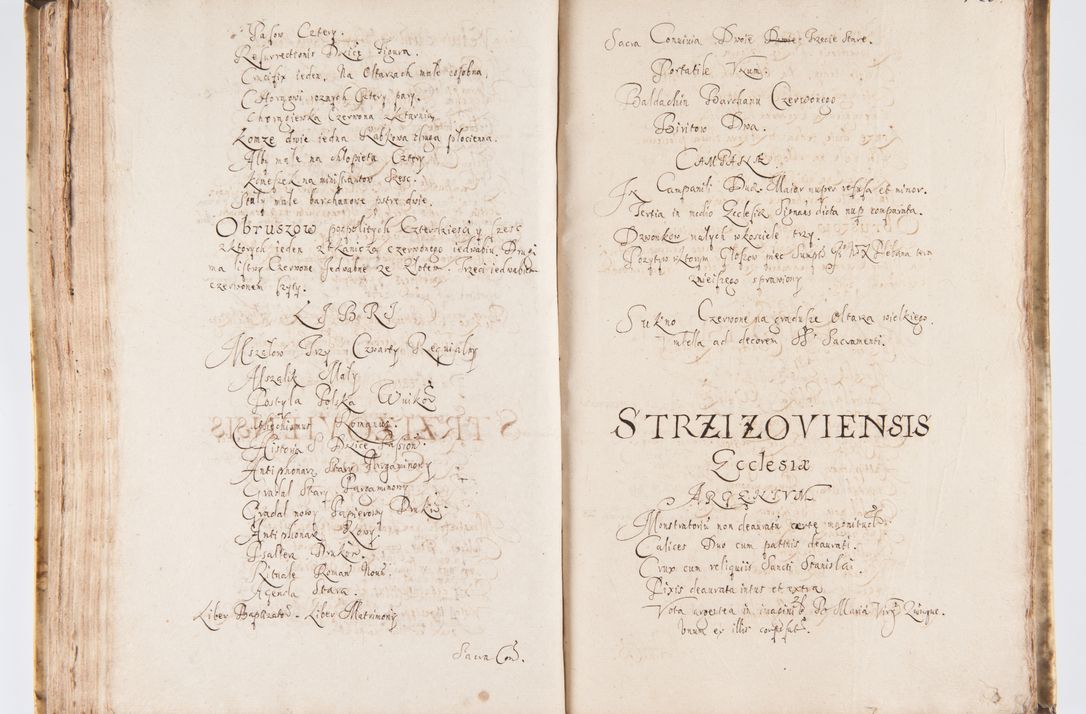 Pasow Cztery.
Resurrectionis Dzięcię figura.
Crucifix ieden, Na Oltarzach małe osobna,
C Horągwi roznych Cztery pary.
Chorągiewka Czerwona
Komże dwie iedna Rąbkowa druga płocienna.
Alby małe na chłopięta Cztery
Komeszek na ministrantow Szesc.
Stuły małe barchanowe pstre dwie.
Obrusżow pospolitych Czterdziesci y szesc
z ktorych ieden z tkanicżką czerwonego iedwabiu. Drugi
ma listwy Czerwone Jedwabne ze złotem. Trzeci iedwabiem
czerwonem szyty.
LIBRI
Mszałow Trzy Czwarty Requialny
Mszalik Mały
Postylla Polska Wuikow
Cathechismus Romanus.
Historia Passion.
Antiphonarz Stary Pargaminowy
Gradał Stary Pargaminowy
Gradał nowy Papierowy Druków.
Antiphonał Nowy.
Psałterz Drukow.
Rituale Roman Nouu.
Agenda Stara.
Liber Baptizator. Liber Matrimony
Sacra Con.
Sacra Conuiuia Dwoie Dwoie Trzecie stare.
Portatile Vnum.
Baldachin Barchanu Czerwonego
Biritow Dwa.
CAMPANÆ
In Campanili Duæ. Maior nuper refusa et minor.
Tertia in medio Ecclesiæ Signans dicta nup comparata.
Dzwonkow małych w kosciele trzy.
Pozytyw w ktorym Głosow
znieiszego sprawiony
Sukno Czerwone na gradusie Ołtarza wielkiego.
Umbella ad decorem SSi Sacramenti.
STRZIZOVIENSIS
Ecclesiæ
ARGENTVM
Monstratoriū non deauratū
Calices Duo cum patinis deaurati.
Crux cum reliquiis Sancti Stanislai.
Pixis deaurata intus et extra
Vota argentea in imagini B Mariæ Virg Quinque.
Vnum ex illis